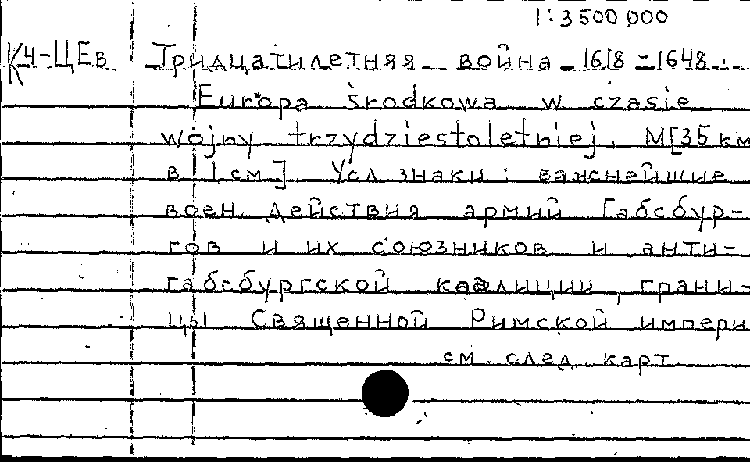 1:3500 000
К4-ЦЕв Тридцатилетняя война 1618-1648.:
Europa środkowa w czasie
wojny trzydziestoletniej. М[35 км
в 1 см] Усл знаки: важнейшие
воен. действия армий Габсбур-
гов и их союзников и анти-
габсбургской коалиции, грани-
цы Священной Римской импери
см. след карт.